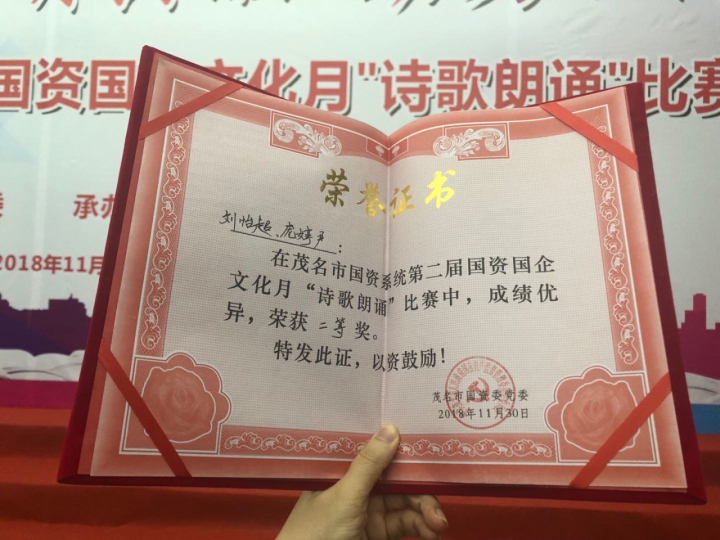 国资国
文化月"诗歌朗诵"比赛
承办
2018年11月
荣誉证书
刘怡超、庞婷尹：
在茂名市国资系统第二届国资国企
文化月“诗歌朗诵”比赛中，成绩优
异，荣获 二等奖。
特发此证，以资鼓励！
茂名市国资委党委
2018年11月30日